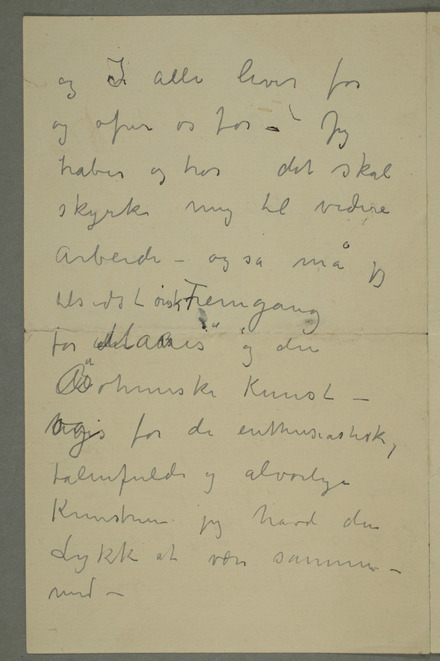 og I alle lever for
og ofrer os for – Jeg
håber og tror det skal
styrke mig til videre
Arbeide – og så må jeg
tilsidst ønske Fremgang
for "Manes" og den
Bøhmiske Kunst –
for de enthusiastiske,
talentfulde og alvorlige
Kunstnere jeg havde den
Lykke at være sammen –
med –